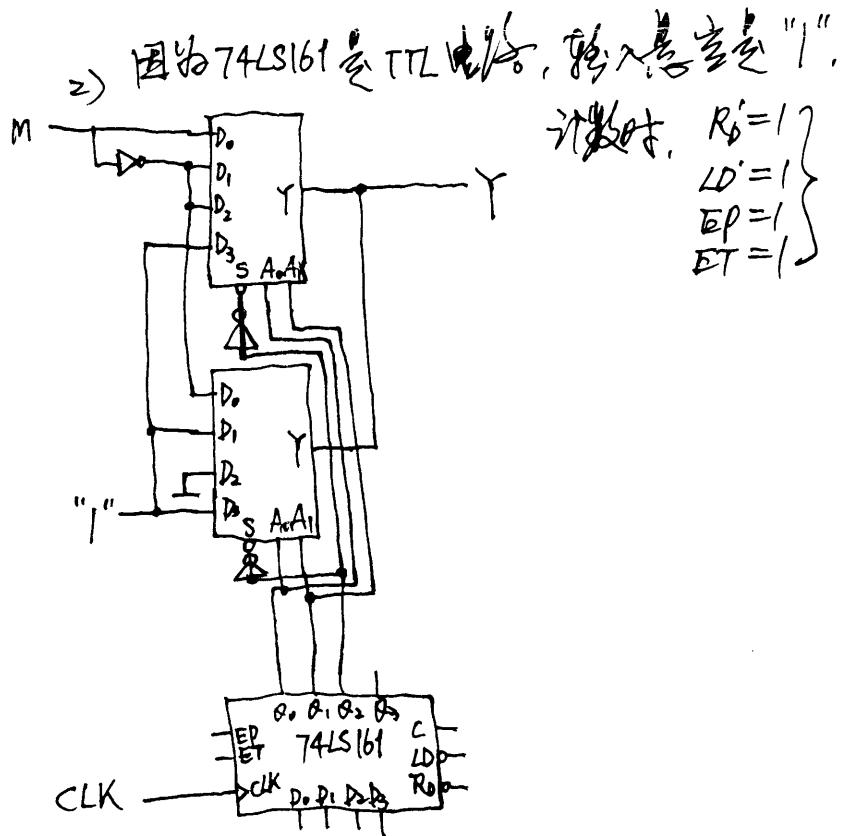 2) 因为74LS161是TTL电路, 输入悬空是"1".
计数时, R_D'=1
LD'=1
EP=1
ET=1
M
D₀
D₁
D₂
D₃
Y
S A₀ A₁
Y
D₀
D₁
D₂
D₃
Y
S A₀ A₁
"1"
Q₀ Q₁ Q₂ Q₃
EP
ET
CLK
74LS161
C
LD
R_D
D₀ D₁ D₂ D₃
CLK